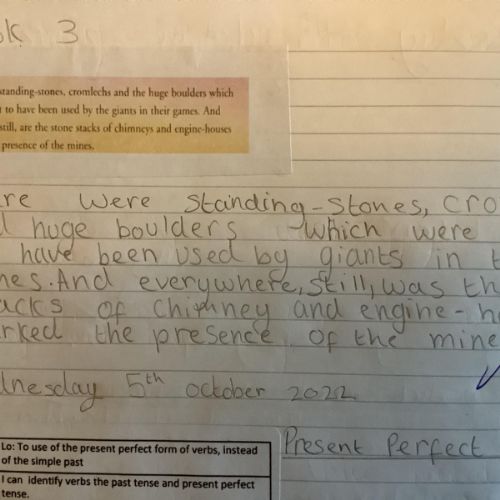 3
standing-stones, cromlechs and the huge boulders which
to have been used by the giants in their games. And
still, are the stone stacks of chimneys and engine-houses
presence of the mines.
were standing-stones, cro
huge boulders which were
have been used by giants in t
And everywhere, still, was th
acks of chimney and engine-h
rked the presence of the mine
dnesday 5th october 2022
Present Perfect
Lo: To use of the present perfect form of verbs, instead
of the simple past
I can identify verbs the past tense and present perfect
tense.